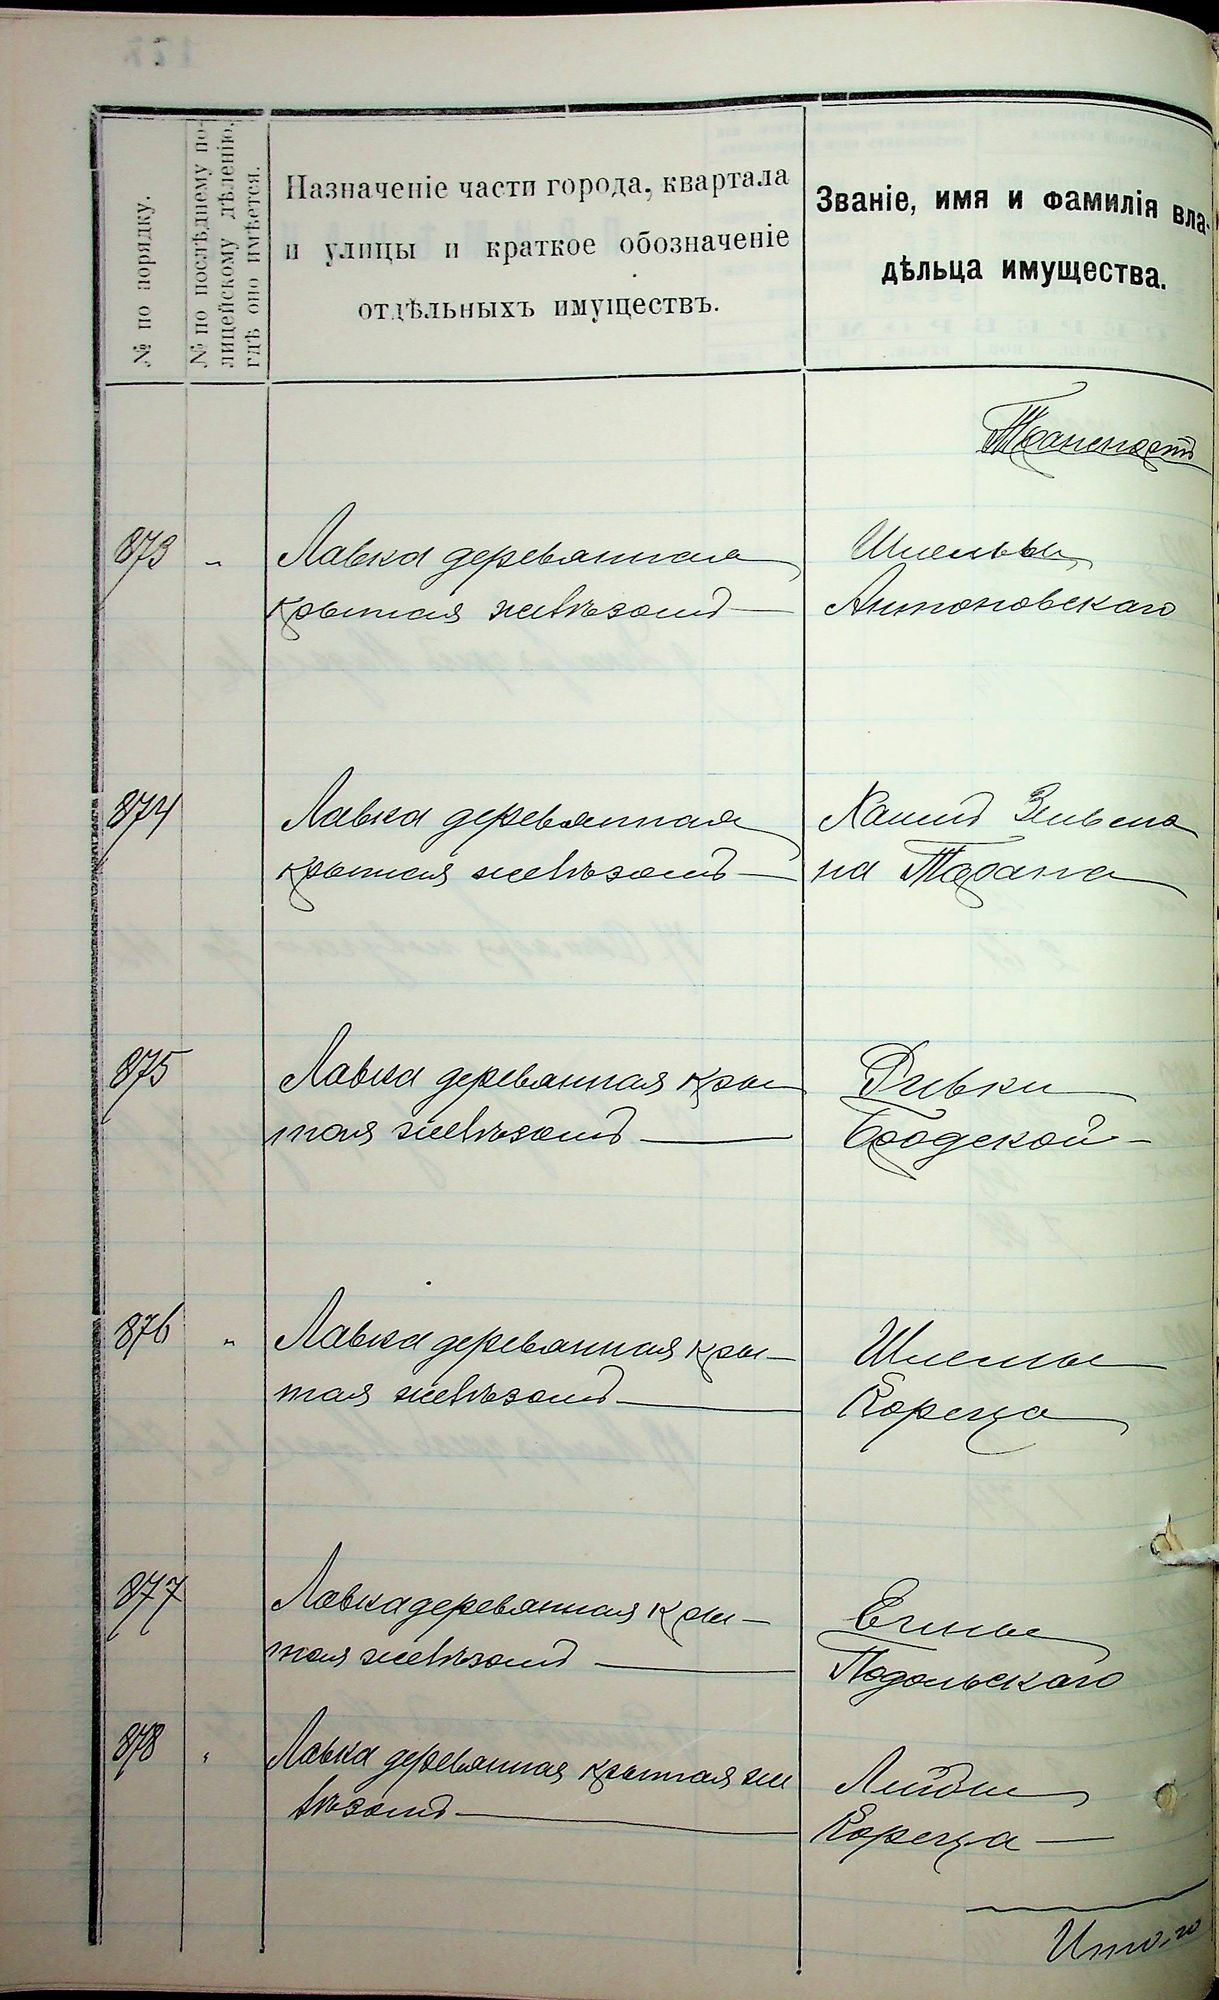 № по порядку.
№ по послѣднему по-
лицейскому дѣленію,
гдѣ оно имѣется.
Назначеніе части города, квартала
и улицы и краткое обозначеніе
отдѣльныхъ имуществъ.
Званіе, имя и фамилія вла-
дѣльца имущества.
Транспортъ
873 " Лавка деревянная
крытая желѣзомъ —
Антоновскаго
874 Лавка деревянная
крытая желѣзомъ —
875 Лавка деревянная кры
тая желѣзомъ —
Ривки
Бродской —
876 " Лавка деревянная кры-
тая желѣзомъ —
Шлемы
Корецa
877 Лавка деревянная кры-
тая желѣзомъ —
Подольскаго
878 " Лавка деревянная крытая же
лѣзомъ —
Лейбы
Кореца —
Итого